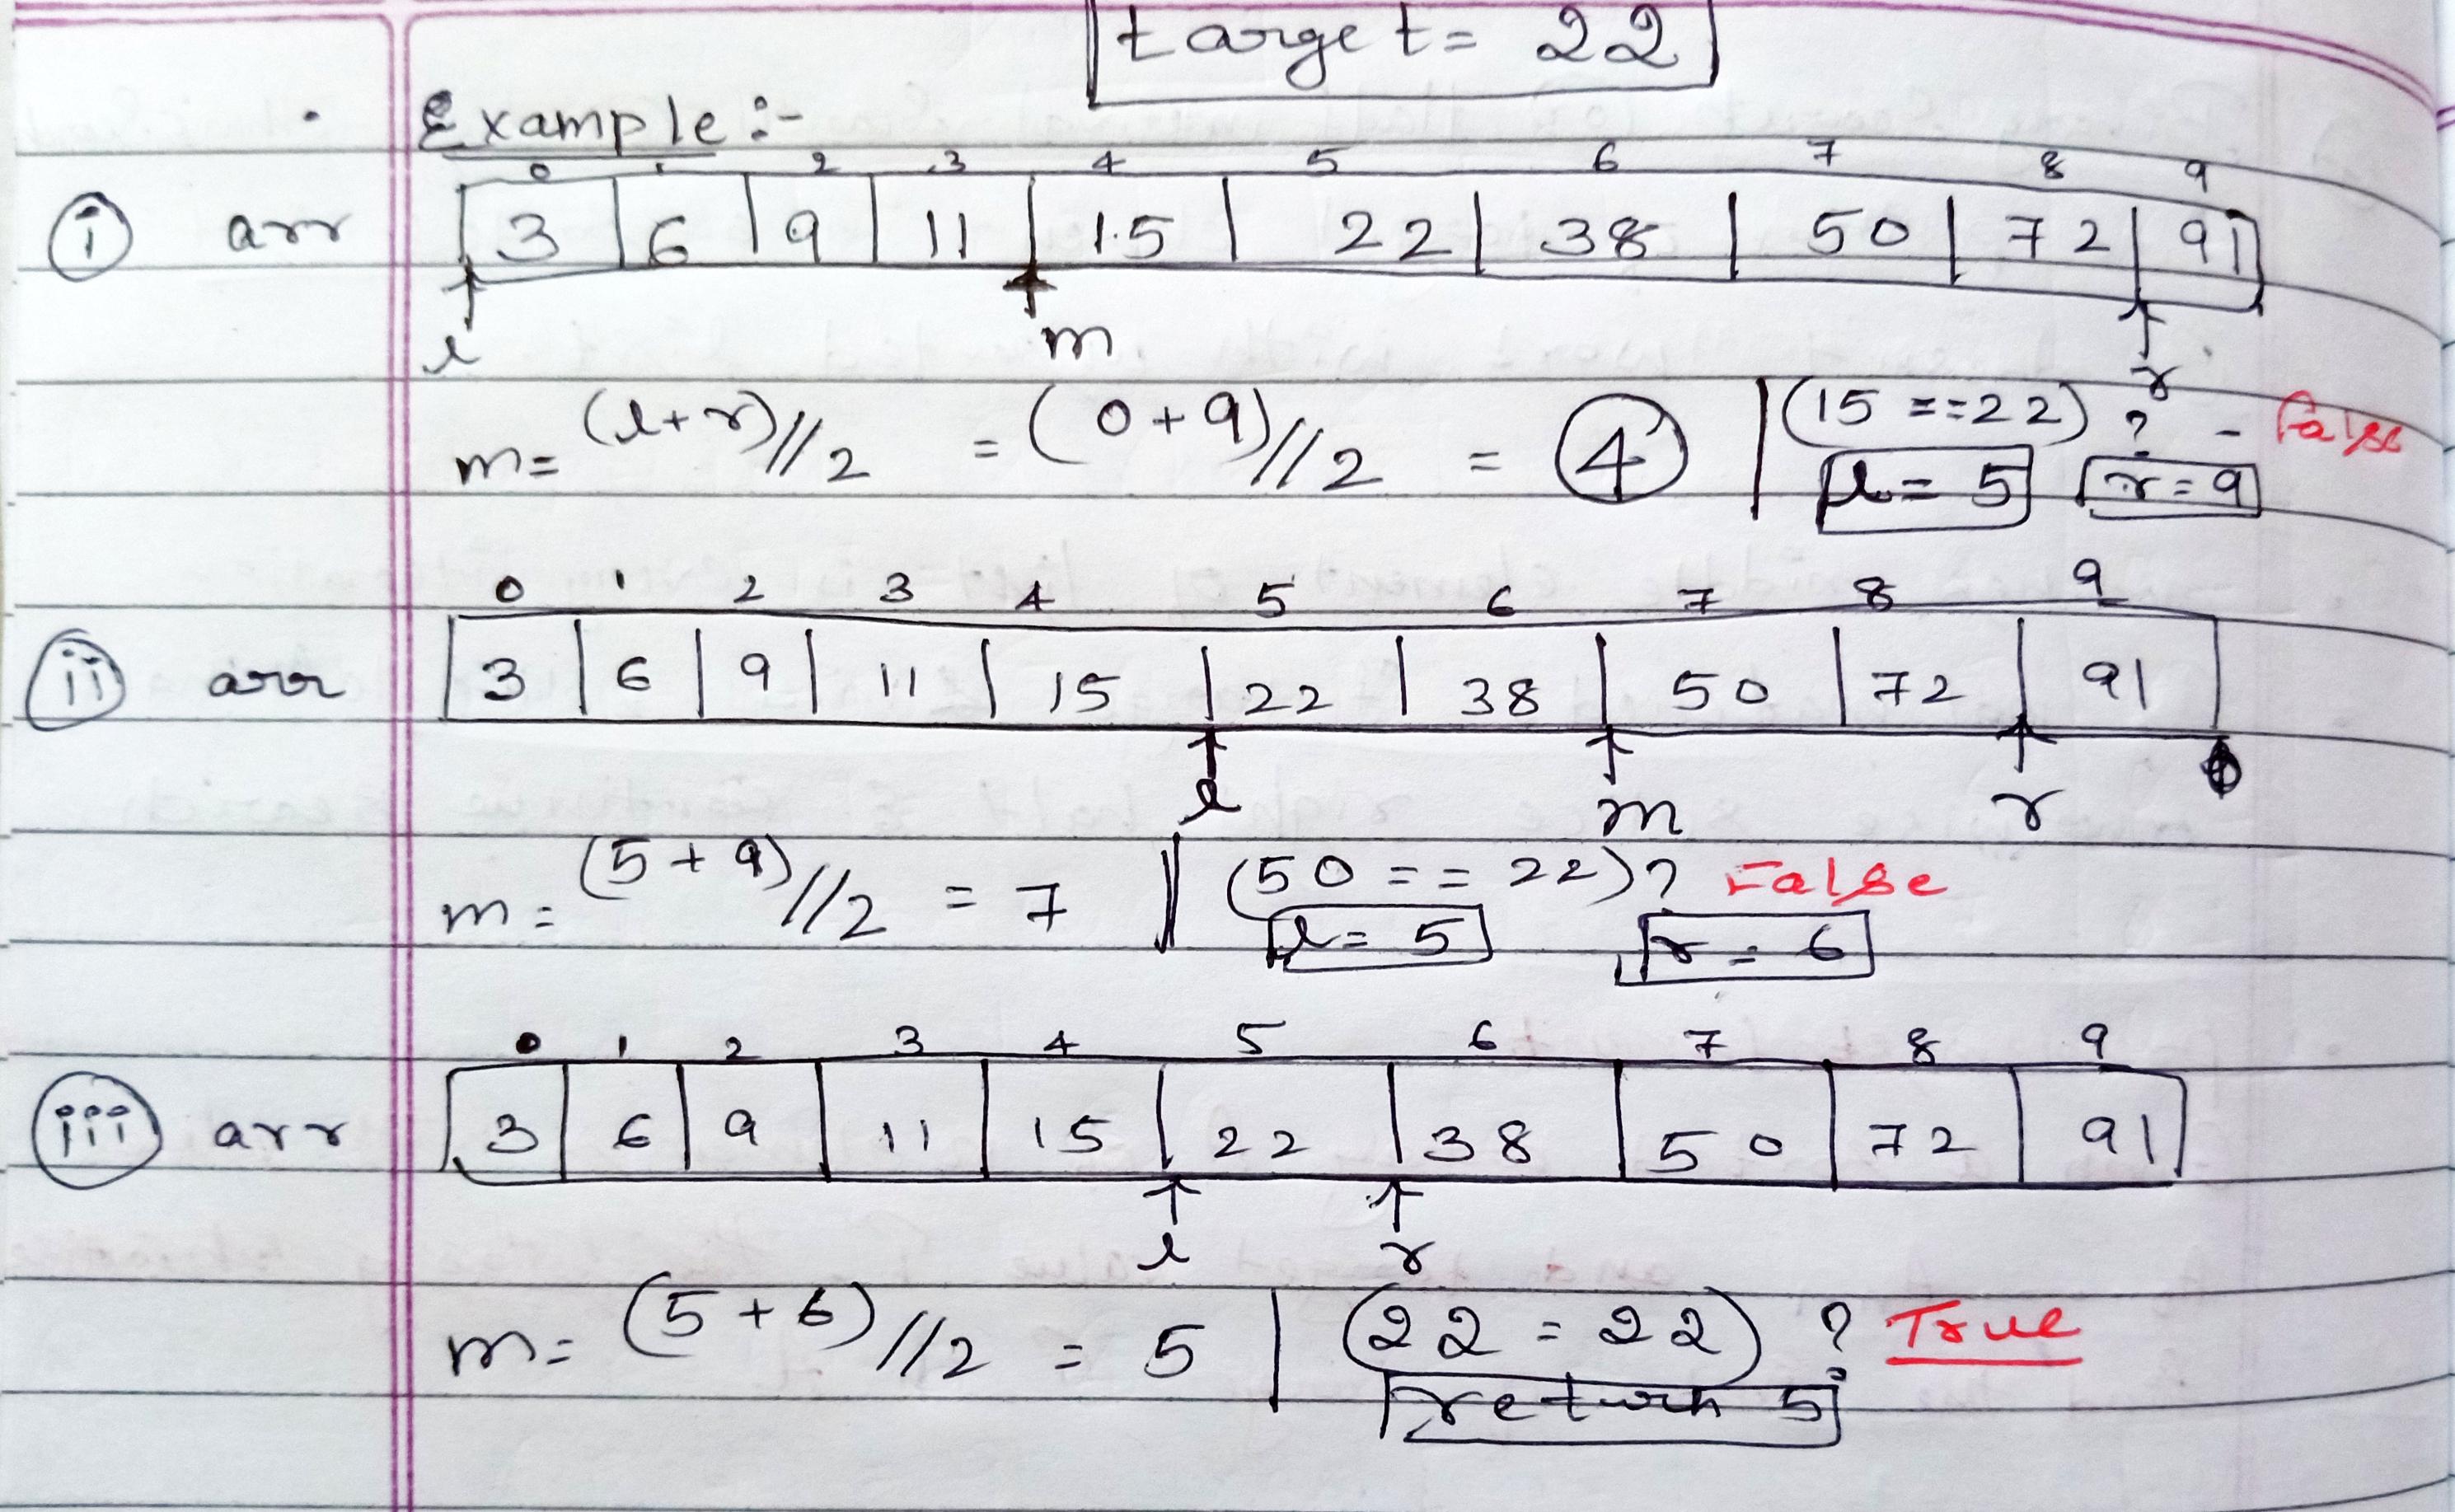 target= 22
Example :-
0 1 2 3 4 5 6 7 8 9
i arr 3 6 9 11 15 22 38 50 72 91
l m r
m= (l+r)//2 = (0+9)//2 = 4 (15 ==22) ? - False
l= 5 r=9
0 1 2 3 4 5 6 7 8 9
ii arr 3 6 9 11 15 22 38 50 72 91
l m r
m= (5+9)//2 = 7 (50 == 22)? False
l= 5 r= 6
0 1 2 3 4 5 6 7 8 9
iii arr 3 6 9 11 15 22 38 50 72 91
l r
m= (5+6)//2 = 5 (22 = 22) ? True
return 5